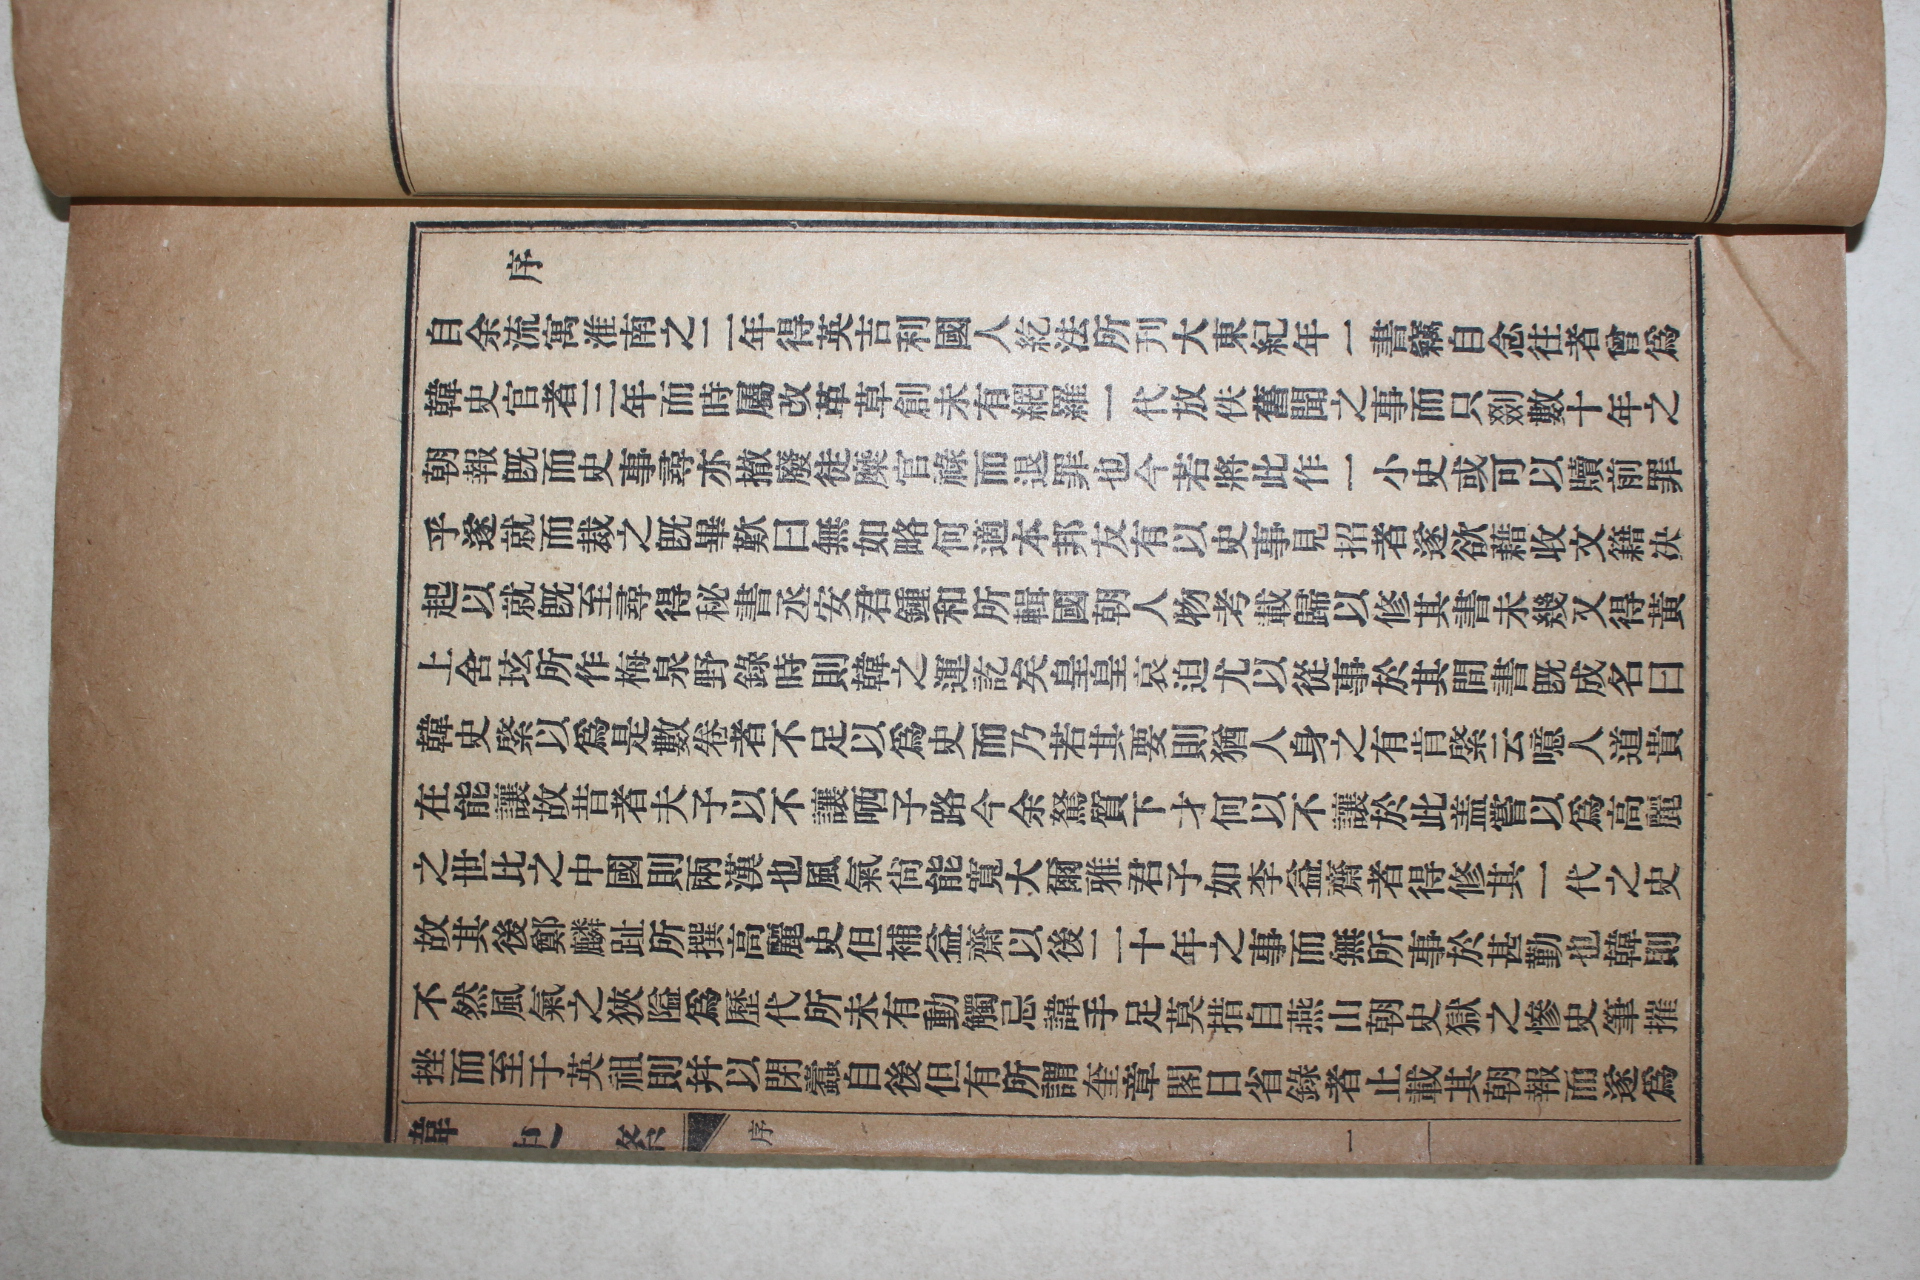 序
自余流寓淮南之二年得英吉利國人紇法所刊大東紀年一書竊自念往者曾爲
韓史官者三年而時屬改革草創未有網羅一代放佚舊聞之事而只剟數十年之
朝報旣而史事尋亦撤廢徒糜官祿而退罪也今若將此作一小史或可以贖前罪
乎遂就而裁之旣畢歎曰無如略何適本邦友有以史事見招者遂欲藉收文籍决
起以就旣至尋得秘書丞安君鍾和所輯國朝人物考載歸以修其書未幾又得黃
上舍玹所作梅泉野錄時則韓之運訖矣皇皇哀迫尤以從事於其間書旣成名曰
韓史綮以爲是數卷者不足以爲史而乃若其要則猶人身之有肯綮云噫人道貴
在能讓故昔者夫子以不讓哂子路今余駑質下才何以不讓於此盖嘗以爲高麗
之世比之中國則兩漢也風氣尙能寬大爾雅君子如李益齋者得修其一代之史
故其後鄭麟趾所撰高麗史但補益齋以後二十年之事而無所事於甚勤也韓則
不然風氣之狹隘爲歷代所未有動觸忌諱手足莫措自燕山朝史獄之慘史筆摧
挫而至于英祖則幷以閉蠹自後但有所謂奎章閣日省錄者止載其朝報而遂爲
韓史綮
序
一